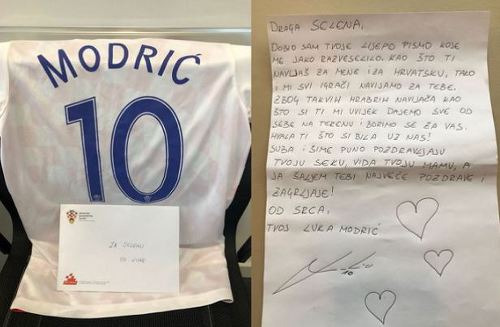 MODRIĆ
10
ZA SELENU
OD LUKE
DRAGA SELENA,
DOBIO SAM TVOJE LIJEPO PISMO KOJE
ME JAKO RAZVESELILO. KAO ŠTO TI
NAVIJAŠ ZA MENE I ZA HRVATSKU, TAKO
I MI SVI IGRAČI NAVIJAMO ZA TEBE.
ZBOG TAKVIH HRABRIH NAVIJAČA KAO
ŠTO SI TI MI UVIJEK DAJEMO SVE OD
SEBE NA TERENU I BORIMO SE ZA VAS.
HVALA TI ŠTO SI BILA UZ NAS!
SUBA I ŠIME PUNO POZDRAVLJAJU
TVOJU SEKU, VIDA TVOJU MAMU, A
JA ŠALJEM TEBI NAJVEĆE POZDRAVE I
ZAGRLJAJE!
OD SRCA,
TVOJ LUKA MODRIĆ
10